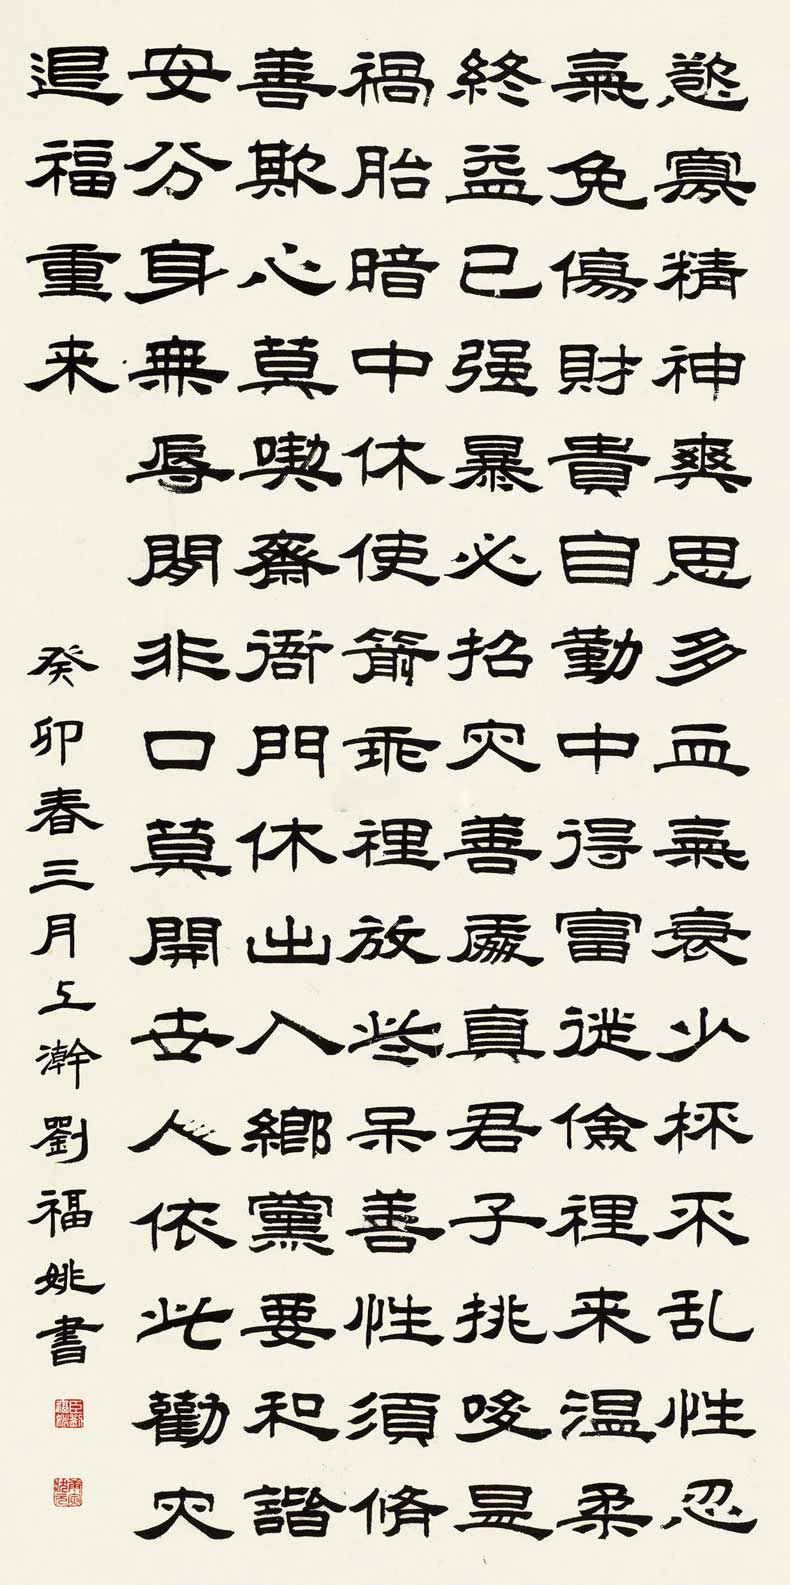 慾寡精神爽思多血氣衰少杯不乱性忍
氣免傷財貴自勤中得富從儉裡来温柔
終益已强暴必招灾善處真君子挑唆是
禍胎暗中休使箭乖裡放些呆善性須脩
善欺心莫喫齋衙門休出入鄉黨要和諧
安分身無辱閒非口莫開世人依此勸灾
退福重来
癸卯春三月上澣劉福姚書
臣劉福姚